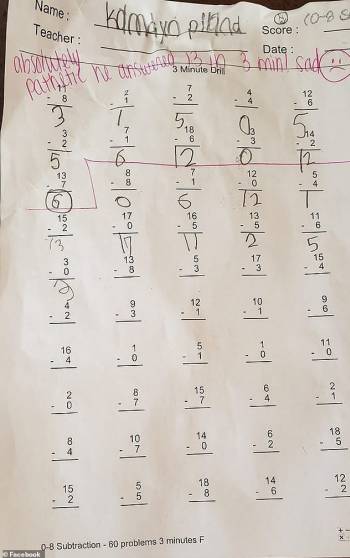 Name:
Teacher:
Score: (0-8 S
Date:
absolutely
pathetic he answered 13 in 3 min! sad
3 Minute Drill
11 2 7 4 12
- 8 - 1 - 2 - 4 - 6
3 1 5 0 5
3 7 18 3 14
- 2 - 1 - 6 - 3 - 2
5 6 12 0 12
13 8 7 12 5
- 7 - 8 - 1 - 0 - 4
6 0 6 12 1
15 17 16 13 11
- 2 - 0 - 5 - 5 - 6
13 17 11 2 5
3 13 5 17 15
- 0 - 8 - 3 - 3 - 4
4 9 12 10 9
- 2 - 3 - 1 - 1 - 6
16 1 5 1 11
- 4 - 0 - 1 - 0 - 0
2 8 15 6 2
- 0 - 7 - 7 - 4 - 1
8 10 14 6 18
- 4 - 7 - 0 - 2 - 5
15 5 18 14 12
- 2 - 5 - 8 - 6 - 2
0-8 Subtraction - 60 problems 3 minutes F
© Facebook